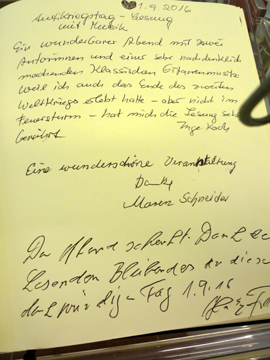 1.9.2016
Antikriegstag - Lesung
mit Musik
Ein wunderbarer Abend mit zwei
Autorinnen und einer sehr nachdenklich
machenden klassischen Gitarrenmusik
weil ich auch das Ende des zweiten
Weltkriegs erlebt hatte - aber nicht im
Feuersturm - hat mich die Lesung sehr
berührt. Inge Koch
Eine wunderschöne Veranstaltung
Danke
Maren Schneider
Der schenkt. Dank
Lesenden Bleibendes
Tag 1.9.16